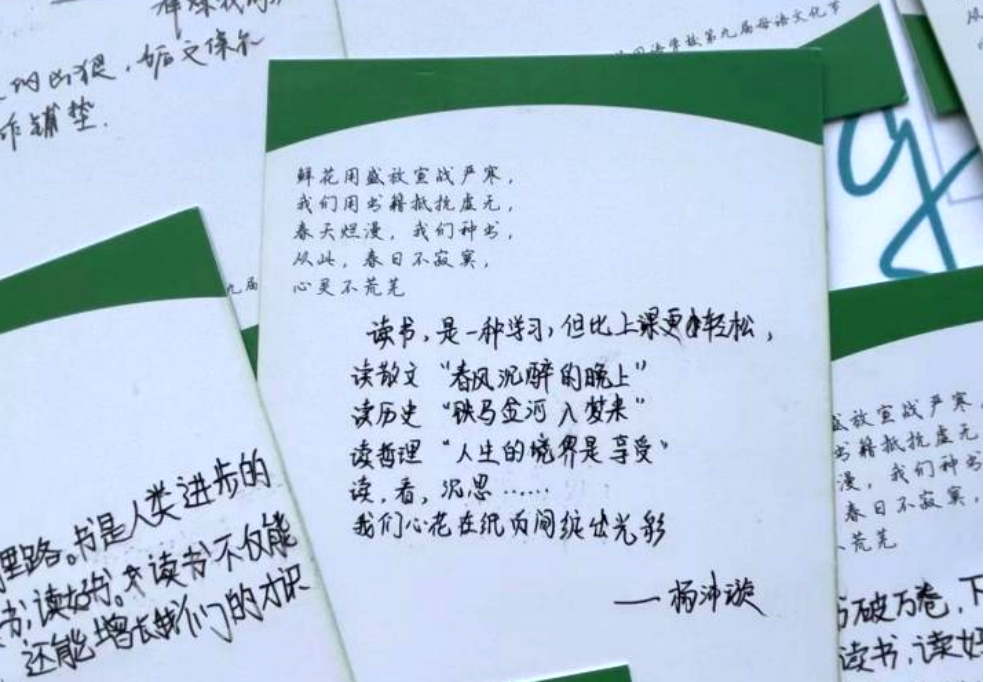 作铺垫.
学校第九届母语文化节
鲜花用盛放宣战严寒，
我们用书籍抵抗虚无，
春天烂漫，我们种书，
从此，春日不寂寞，
心灵不荒芜
读书，是一种学习，但比上课更轻松，
读散文“春风沉醉的晚上”
读历史“铁马金河入梦来”
读哲理“人生的境界是享受”
读，看，沉思……
我们心花在纸页间绽出光彩
——杨沛璇
九届
里路。书是人类进步的
书，读好书。读书不仅能
还能增长我们的才识
盛放宣战严寒，
书籍抵抗虚无
漫，我们种书
春日不寂寞，
荒芜
破万卷，下
读书，读好